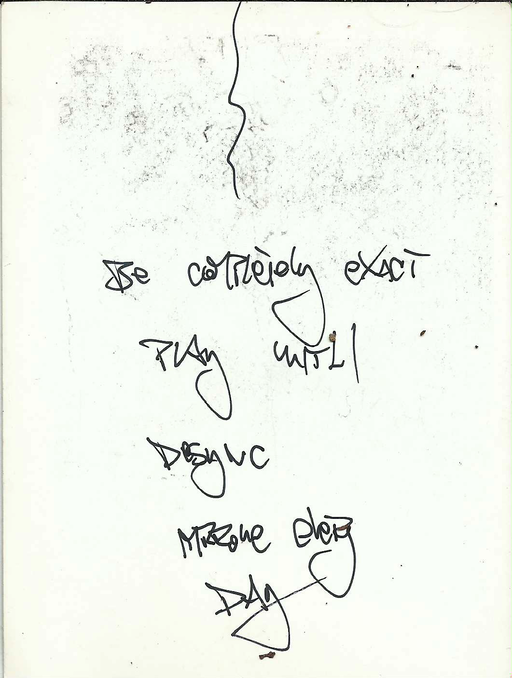 Be completely exact
Play until
Desync
Mirzone every
Day